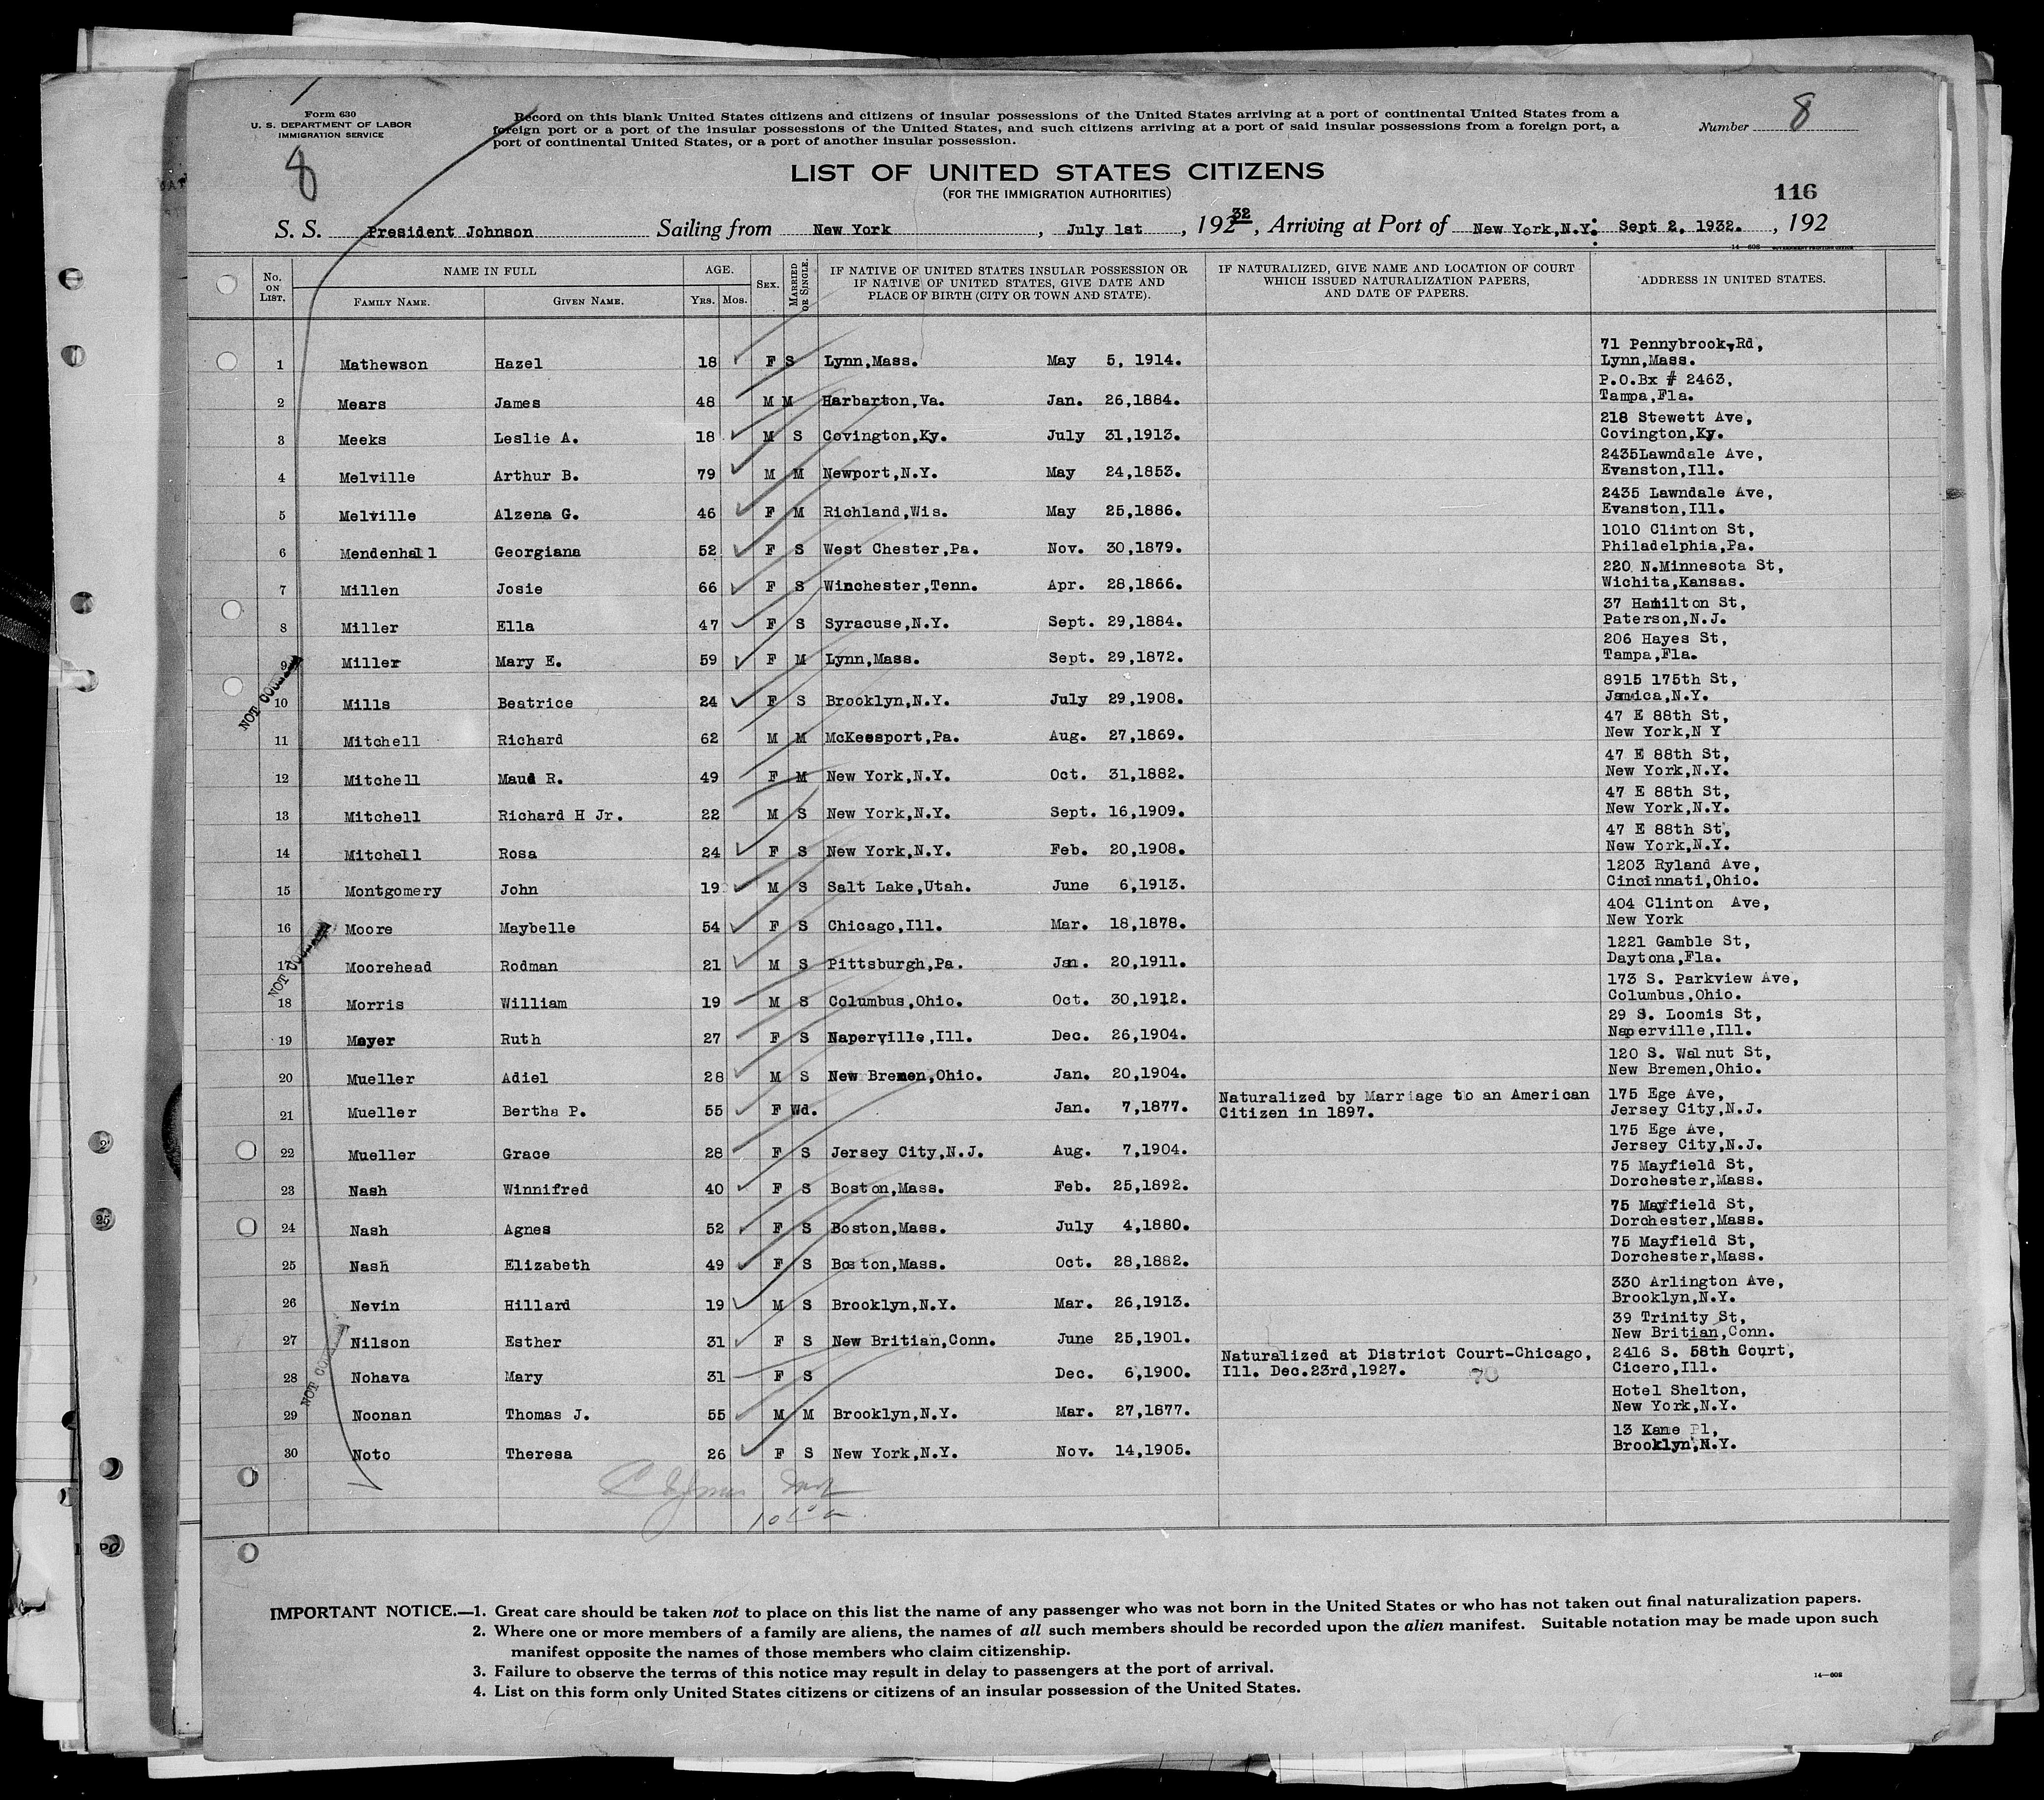 Form 630
U. S. DEPARTMENT OF LABOR
IMMIGRATION SERVICE
8
Record on this blank United States citizens and citizens of insular possessions of the United States arriving at a port of continental United States from a
foreign port or a port of the insular possessions of the United States, and such citizens arriving at a port of said insular possessions from a foreign port, a
port of continental United States, or a port of another insular possession.
Number 8
LIST OF UNITED STATES CITIZENS
(FOR THE IMMIGRATION AUTHORITIES)
116
S. S. President Johnson Sailing from New York, July 1st, 192 32, Arriving at Port of New York,N.Y. Sept 2, 1932., 192
14—608 GOVERNMENT PRINTING OFFICE
No. ON LIST. NAME IN FULL FAMILY NAME. GIVEN NAME. AGE. Yrs. Mos. SEX. MARRIED OR SINGLE. IF NATIVE OF UNITED STATES INSULAR POSSESSION OR IF NATIVE OF UNITED STATES, GIVE DATE AND PLACE OF BIRTH (CITY OR TOWN AND STATE). IF NATURALIZED, GIVE NAME AND LOCATION OF COURT WHICH ISSUED NATURALIZATION PAPERS, AND DATE OF PAPERS. ADDRESS IN UNITED STATES.
71 Pennybrook,Rd,
1 Mathewson Hazel 18 F S Lynn,Mass. May 5, 1914. Lynn,Mass.
P.O.Bx # 2463,
2 Mears James 48 M M Harbarton,Va. Jan. 26,1884. Tampa,Fla.
218 Stewett Ave,
3 Meeks Leslie A. 18 M S Covington,Ky. July 31,1913. Covington,Ky.
2435Lawndale Ave,
4 Melville Arthur B. 79 M M Newport,N.Y. May 24,1853. Evanston,Ill.
2435 Lawndale Ave,
5 Melville Alzena G. 46 F M Richland,Wis. May 25,1886. Evanston,Ill.
1010 Clinton St,
6 Mendenhall Georgiana 52 F S West Chester,Pa. Nov. 30,1879. Philadelphia,Pa.
220 N.Minnesota St,
7 Millen Josie 66 F S Winchester,Tenn. Apr. 28,1866. Wichita,Kansas.
37 Hamilton St,
8 Miller Ella 47 F S Syracuse,N.Y. Sept. 29,1884. Paterson,N.J.
206 Hayes St,
9 Miller Mary E. 59 F M Lynn,Mass. Sept. 29,1872. Tampa,Fla.
NOT
8915 175th St,
10 Mills Beatrice 24 F S Brooklyn,N.Y. July 29,1908. Jamaica,N.Y.
47 E 88th St,
11 Mitchell Richard 62 M M McKeesport,Pa. Aug. 27,1869. New York,N Y
47 E 88th St,
12 Mitchell Maud R. 49 F M New York,N.Y. Oct. 31,1882. New York,N.Y.
47 E 88th St,
13 Mitchell Richard H Jr. 22 M S New York,N.Y. Sept. 16,1909. New York,N.Y.
47 E 88th St,
14 Mitchell Rosa 24 F S New York,N.Y. Feb. 20,1908. New York,N.Y.
1203 Ryland Ave,
15 Montgomery John 19 M S Salt Lake,Utah. June 6,1913. Cincinnati,Ohio.
404 Clinton Ave,
16 Moore Maybelle 54 F S Chicago,Ill. Mar. 18,1878. New York
1221 Gamble St,
17 Moorehead Rodman 21 M S Pittsburgh,Pa. Jan. 20,1911. Daytona,Fla.
NOT
173 S. Parkview Ave,
18 Morris William 19 M S Columbus,Ohio. Oct. 30,1912. Columbus,Ohio.
29 S. Loomis St,
19 Meyer Ruth 27 F S Naperville,Ill. Dec. 26,1904. Naperville,Ill.
120 S. Walnut St,
20 Mueller Adiel 28 M S New Bremen,Ohio. Jan. 20,1904. New Bremen,Ohio.
Naturalized by Marriage to an American 175 Ege Ave,
21 Mueller Bertha P. 55 F Wd. Jan. 7,1877. Citizen in 1897. Jersey City,N.J.
175 Ege Ave,
22 Mueller Grace 28 F S Jersey City,N.J. Aug. 7,1904. Jersey City,N.J.
75 Mayfield St,
23 Nash Winnifred 40 F S Boston,Mass. Feb. 25,1892. Dorchester,Mass.
75 Mayfield St,
24 Nash Agnes 52 F S Boston,Mass. July 4,1880. Dorchester,Mass.
75 Mayfield St,
25 Nash Elizabeth 49 F S Boston,Mass. Oct. 28,1882. Dorchester,Mass.
330 Arlington Ave,
26 Nevin Hillard 19 M S Brooklyn,N.Y. Mar. 26,1913. Brooklyn,N.Y.
39 Trinity St,
27 Nilson Esther 31 F S New Britian,Conn. June 25,1901. New Britian,Conn.
Naturalized at District Court-Chicago, 2416 S. 58th Court,
28 Nohava Mary 31 F S Dec. 6,1900. Ill. Dec.23rd,1927. 70 Cicero,Ill.
NOT
Hotel Shelton,
29 Noonan Thomas J. 55 M M Brooklyn,N.Y. Mar. 27,1877. New York,N.Y.
13 Kane Pl,
30 Noto Theresa 26 F S New York,N.Y. Nov. 14,1905. Brooklyn,N.Y.
IMPORTANT NOTICE.—1. Great care should be taken not to place on this list the name of any passenger who was not born in the United States or who has not taken out final naturalization papers.
2. Where one or more members of a family are aliens, the names of all such members should be recorded upon the alien manifest. Suitable notation may be made upon such
manifest opposite the names of those members who claim citizenship.
3. Failure to observe the terms of this notice may result in delay to passengers at the port of arrival.
14—608
4. List on this form only United States citizens or citizens of an insular possession of the United States.